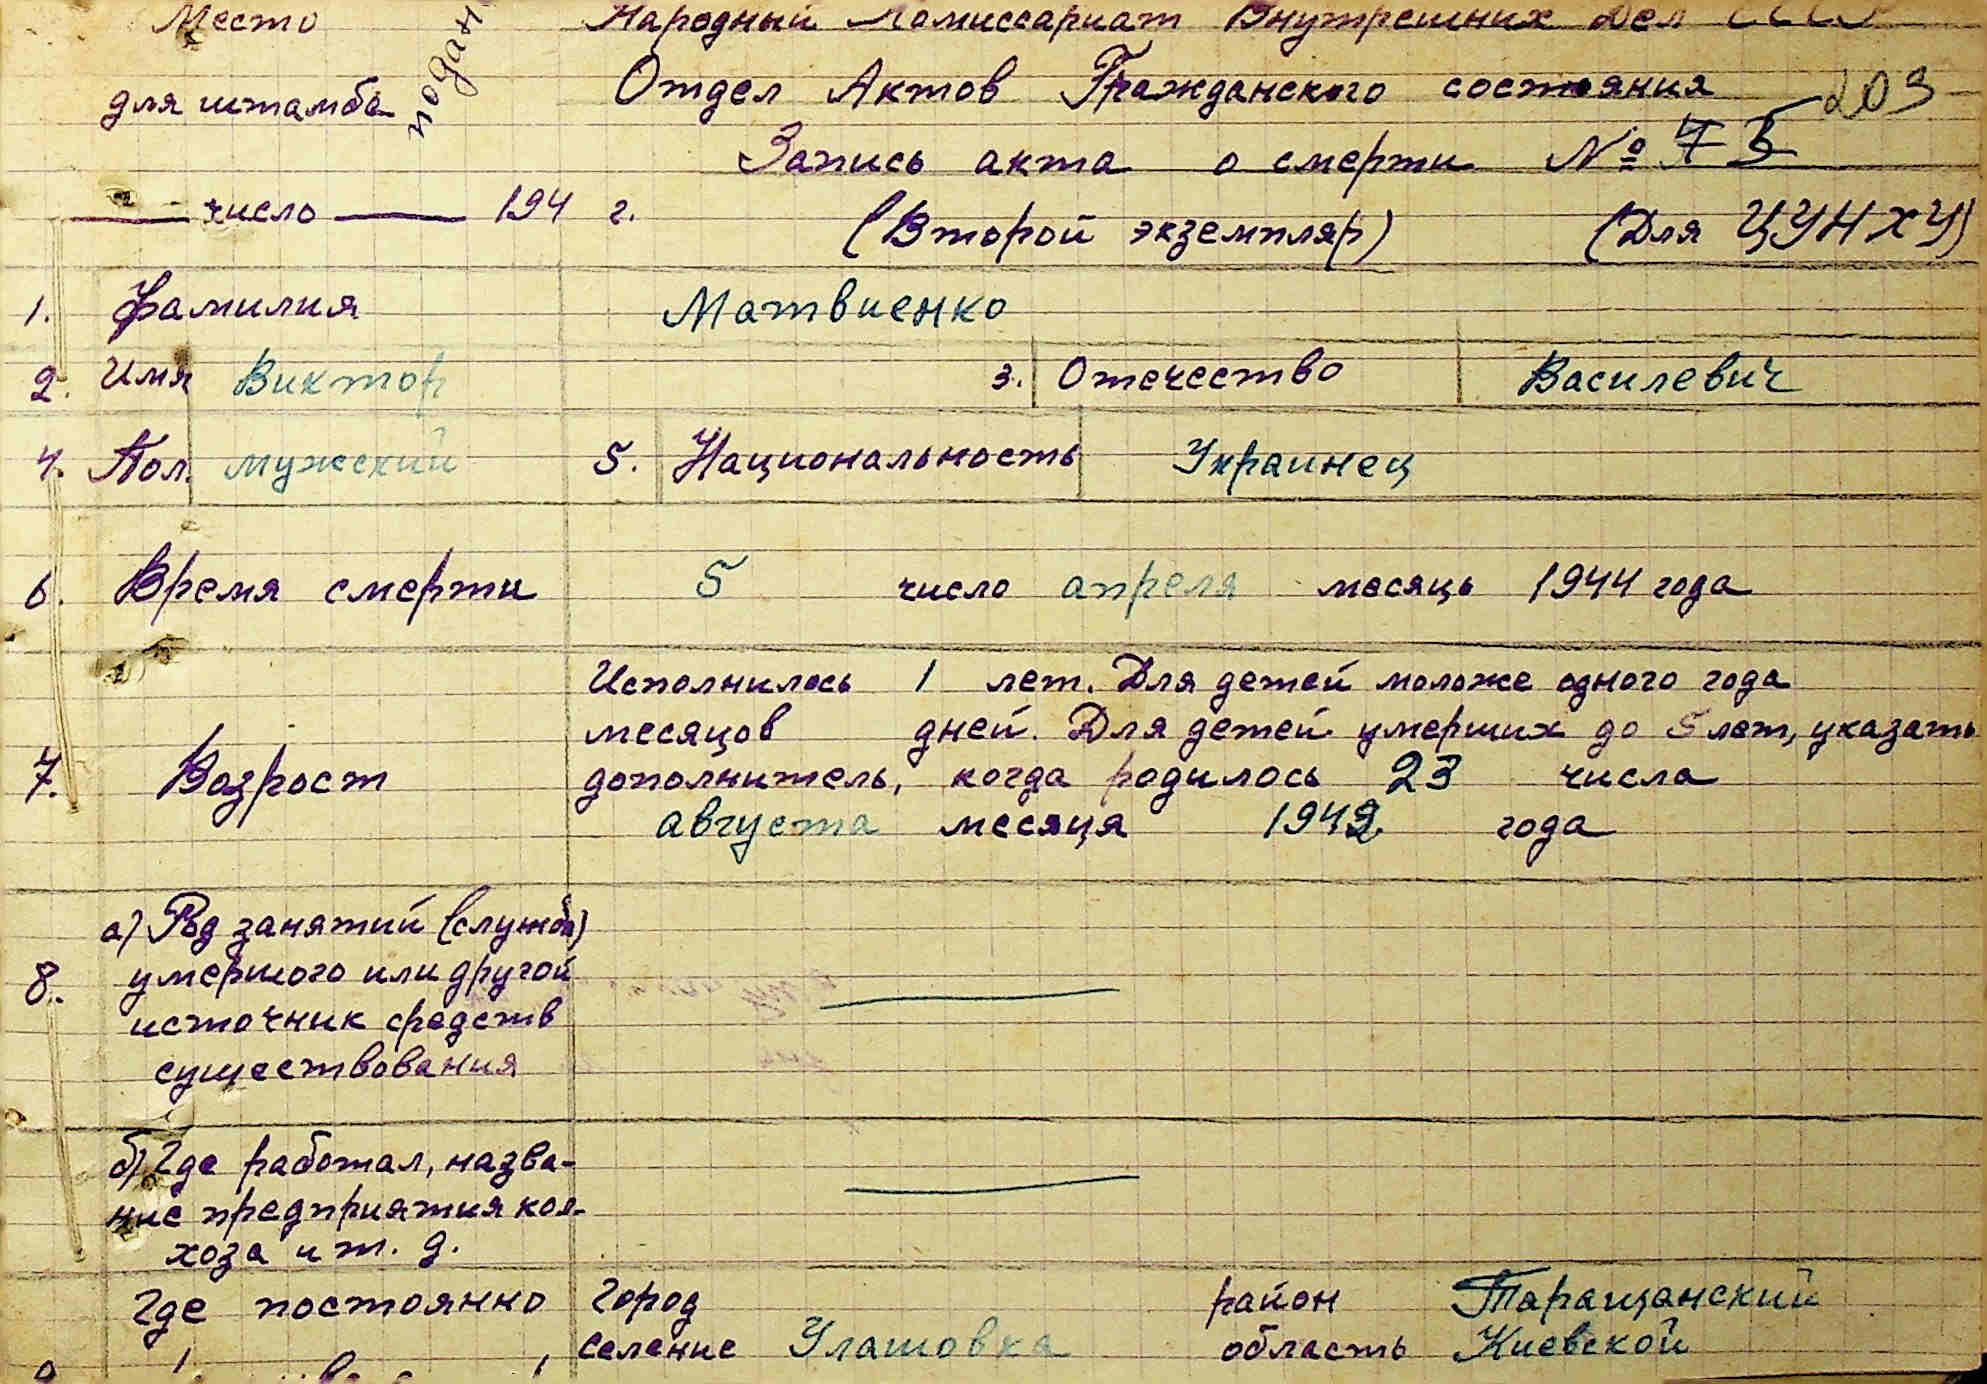 Место
подан
Народный Комиссариат Внутрешних Дел СССР
для штамба
Отдел Актов Гражданского состояния
203
Запись акта о смерти № 75
число 194 г.
(Второй экземпляр) (Для ЦУНХУ)
1. Фамилия Матвиенко
2. Имя Виктор 3. Отечество Василевич
4. Пол. мужский 5. Национальность Украинец
6. Время смерти 5 число апреля месяць 1944 года
Исполнилось 1 лет. Для детей моложе одного года
месяцов дней. Для детей умерших до 5 лет, указать
7. Возрост дополнитель, когда родилось 23 числа
августа месяця 1942 года
а) Род занятий (служба)
8. умершого или другой
источник средств
существования
б) Где работал, назва-
ние предприятия кол-
хоза и т. д.
Где постоянно город район Таращанский
селение Улашовка область Киевской